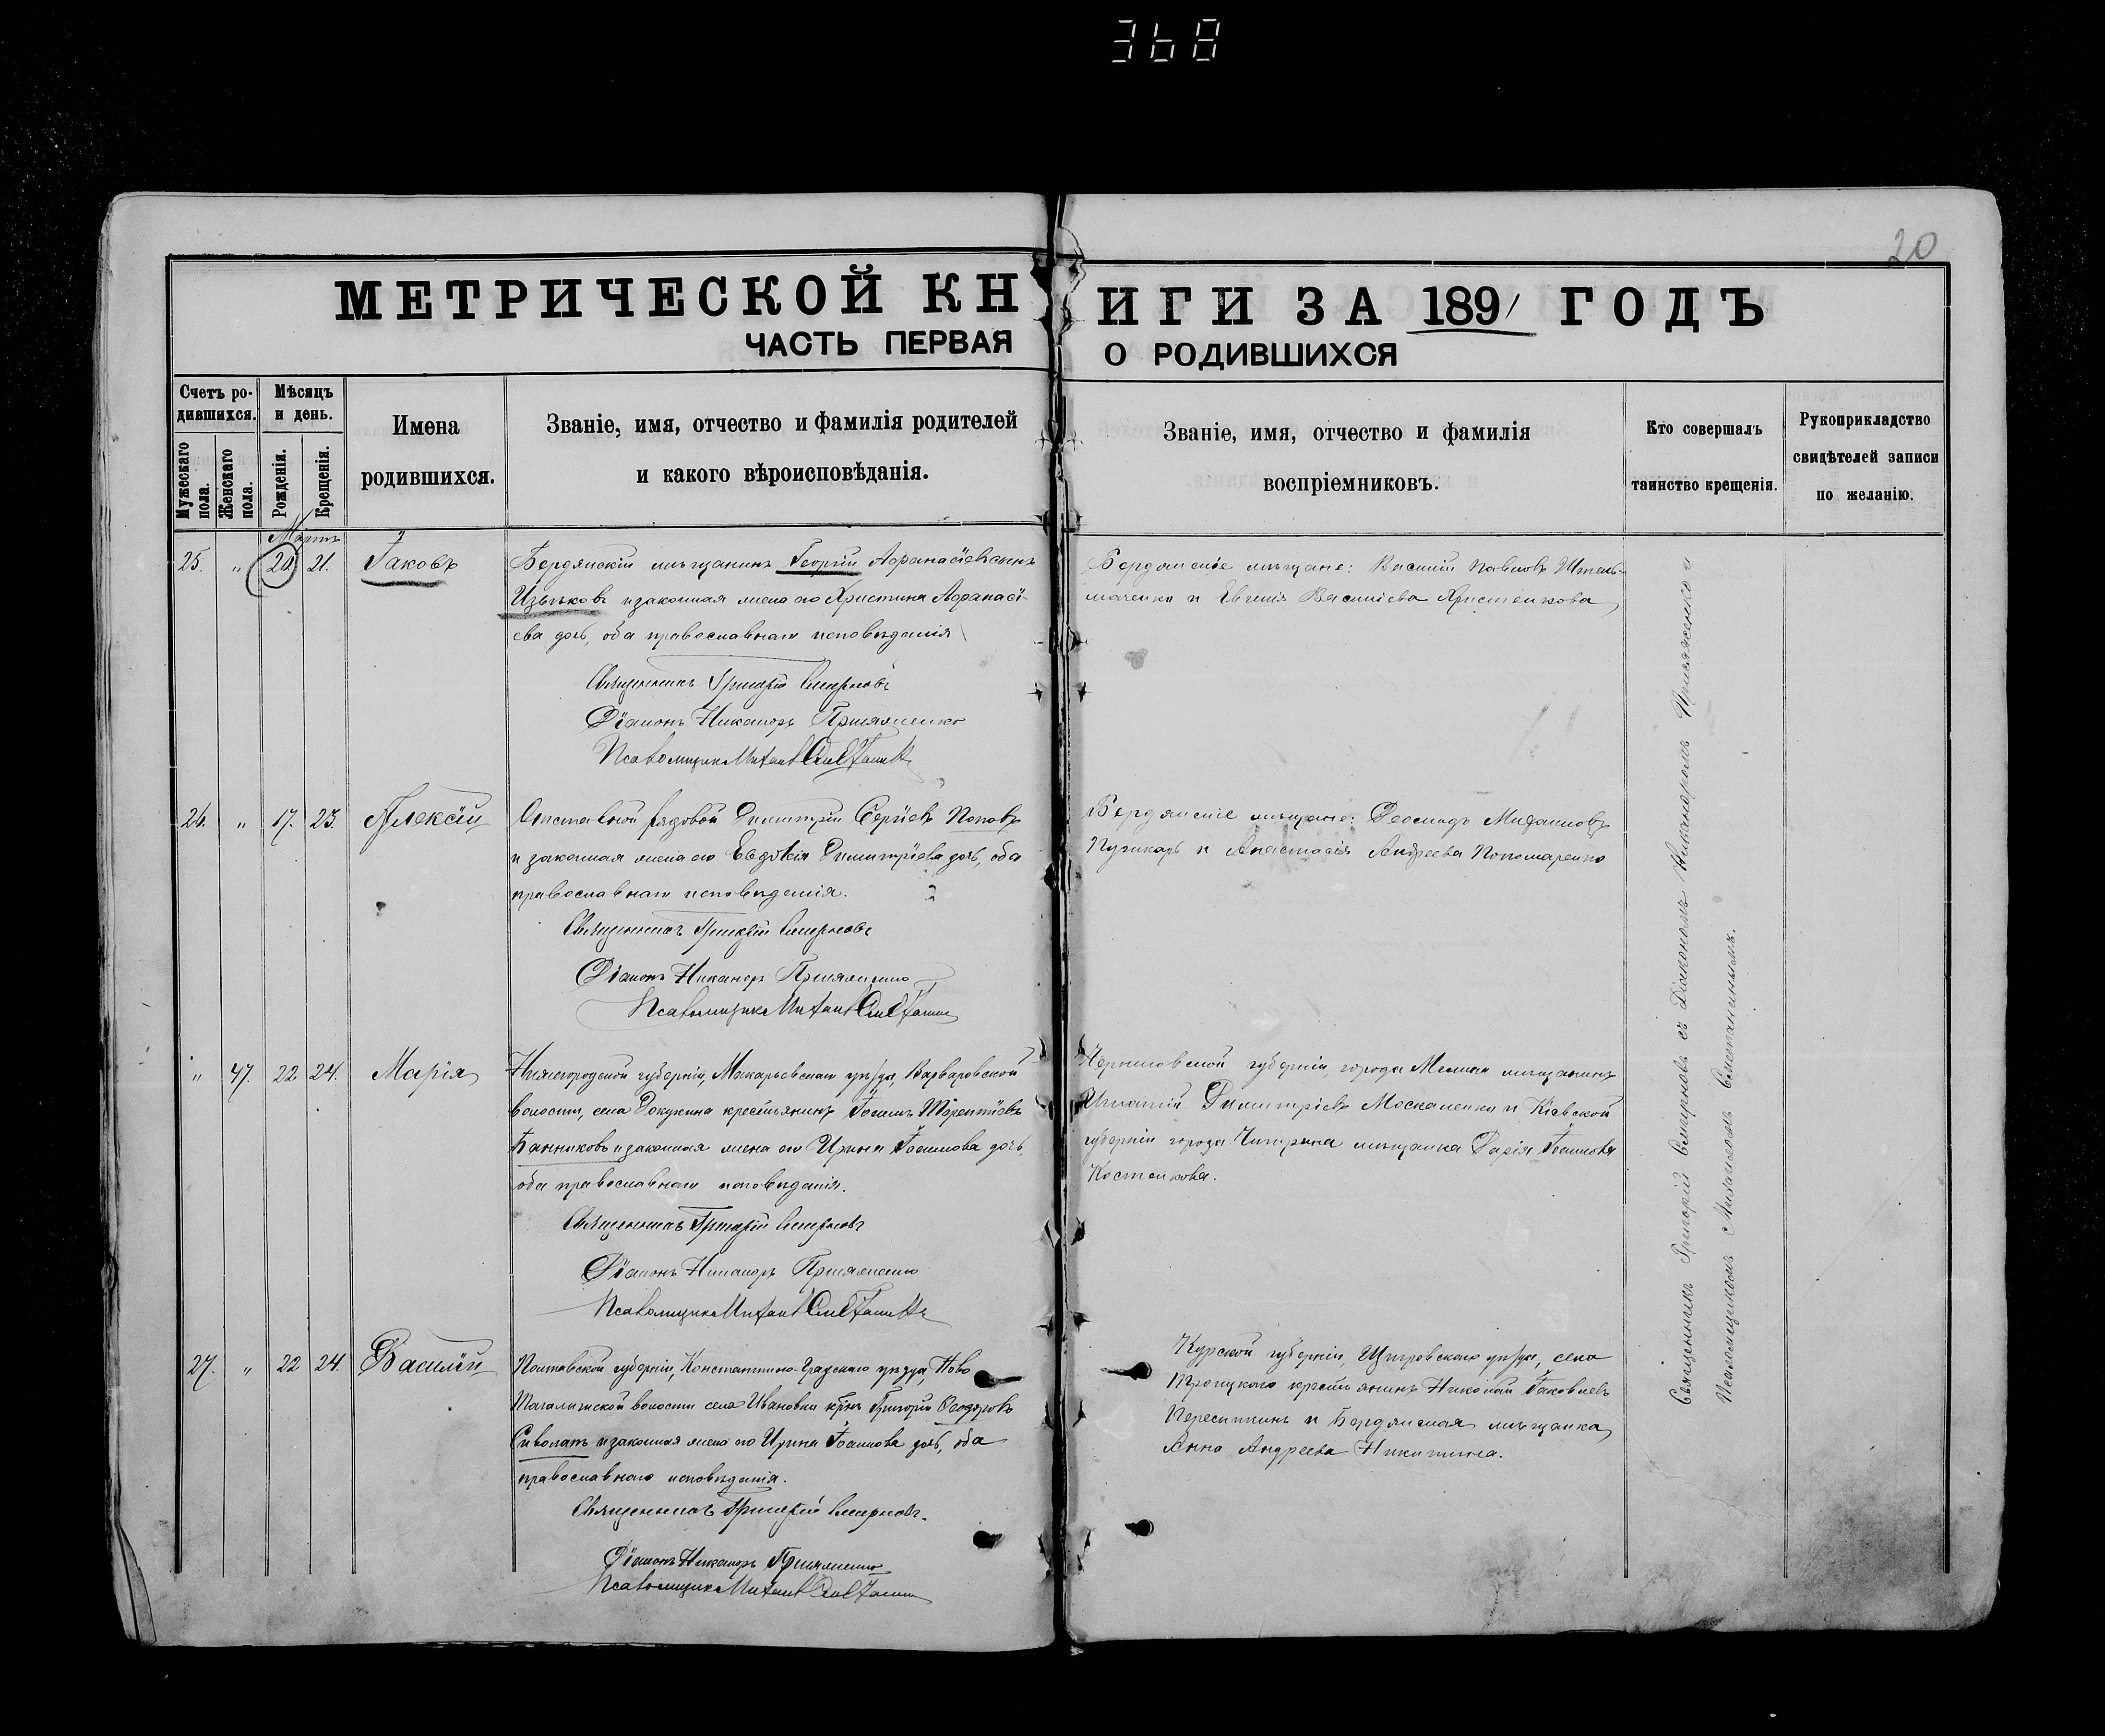 368
20
МЕТРИЧЕСКОЙ КНИГИ ЗА 1891 ГОДЪ
ЧАСТЬ ПЕРВАЯ О РОДИВШИХСЯ
Счетъ ро-
дившихся.
Мужескаго пола.
Женскаго пола.
Мѣсяцъ
и день.
Рожденія.
Крещенія.
Имена
родившихся.
Званіе, имя, отчество и фамилія родителей
и какого вѣроисповѣданія.
Званіе, имя, отчество и фамилія
воспріемниковъ.
Кто совершалъ
таинство крещенія.
Рукоприкладство
свидѣтелей записи
по желанію.
Мартъ
25. " 20 21. Іаковъ
Бердянскій мѣщанинъ Георгій Афанасіевъ сынъ
Изъѣковъ и законная жена его Христина Афанасі-
ева дочь, оба православнаго исповѣданія
Священникъ Григорій Смирновъ
Діаконъ Никаноръ Присяженко
Псаломщикъ Михаилъ
Бердянскіе мѣщане: Василій Павловъ Штель-
маченко и Евгенія Василіева Христенкова
26. " 17. 23. Алексій
Отставной рядовой Димитрій Сергіевъ Поповъ
и законная жена его Евдокія Димитріева дочь, оба
православнаго исповѣданія.
Священникъ Григорій Смирновъ
Діаконъ Никаноръ Присяженко
Псаломщикъ Михаилъ
Бердянскіе мѣщане: Феодоръ Михаиловъ
и Анастасія Андреева Пономаренко
" 47. 22 24. Марія
Нижегородской губерніи, Макарьевскаго уѣзда, Варваровской
волости, села Докукина крестьянинъ Іоаннъ
Банниковъ и законная жена его Ирина Іоаннова дочь,
оба православнаго исповѣданія.
Священникъ Григорій Смирновъ
Діаконъ Никаноръ Присяженко
Псаломщикъ Михаилъ
Черниговской губерніи, города мѣщанинъ
Игнатій Димитріевъ Москаленко и Кіевской
губерніи города Чигирина мѣщанка Дарія Іоаннова
Костенкова.
27. " 22 24. Василій
Полтавской губерніи, Константино-градскаго уѣзда, Ново
волости села Ивановки кр-нъ Григорій Феодоровъ
и законная жена его Ирина Іоаннова дочь, оба
православнаго исповѣданія.
Священникъ Григорій Смирновъ.
Діаконъ Никаноръ Присяженко
Псаломщикъ Михаилъ
Курской губерніи, Щигровскаго уѣзда, села
Троицкаго крестьянинъ Николай Іаковлевъ
и Бердянская мѣщанка
Анна Андреева Никитина.
Священникъ Григорій Смирновъ съ Діакономъ Никаноромъ Присяженко и
Псаломщикомъ Михаиломъ